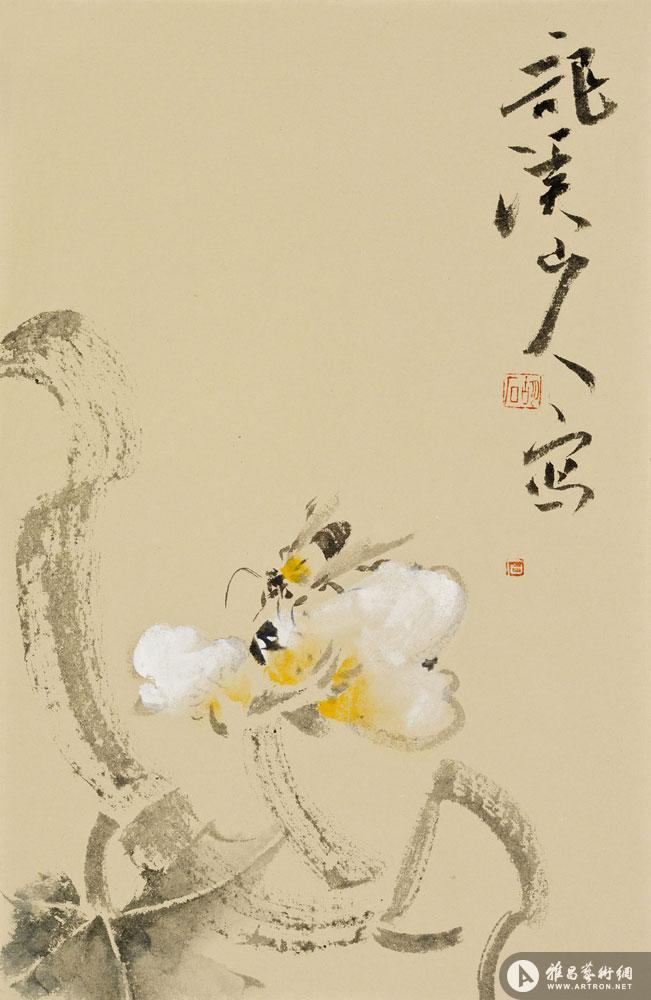 龍溪山人写
胡石
雅昌藝術網
WWW.ARTRON.NET